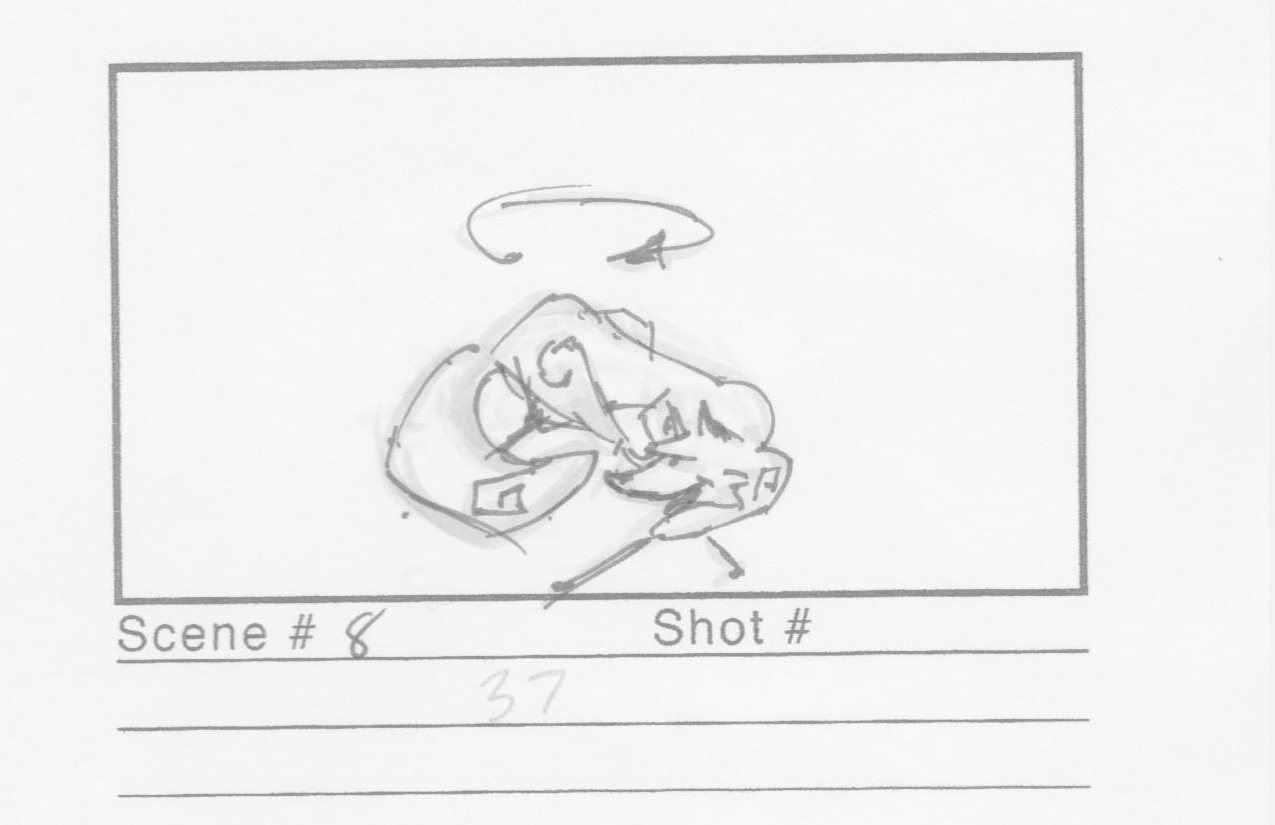 Scene # 8 Shot #
37